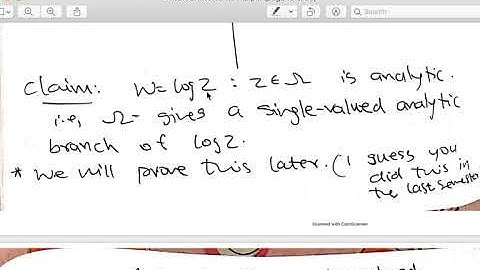 Search
Claim: W = log z : z ∈ Ω is analytic.
i.e, Ω - gives a single-valued analytic
branch of log z.
* We will prove this later. (I guess you
did this in
the last semester
Scanned with CamScanner